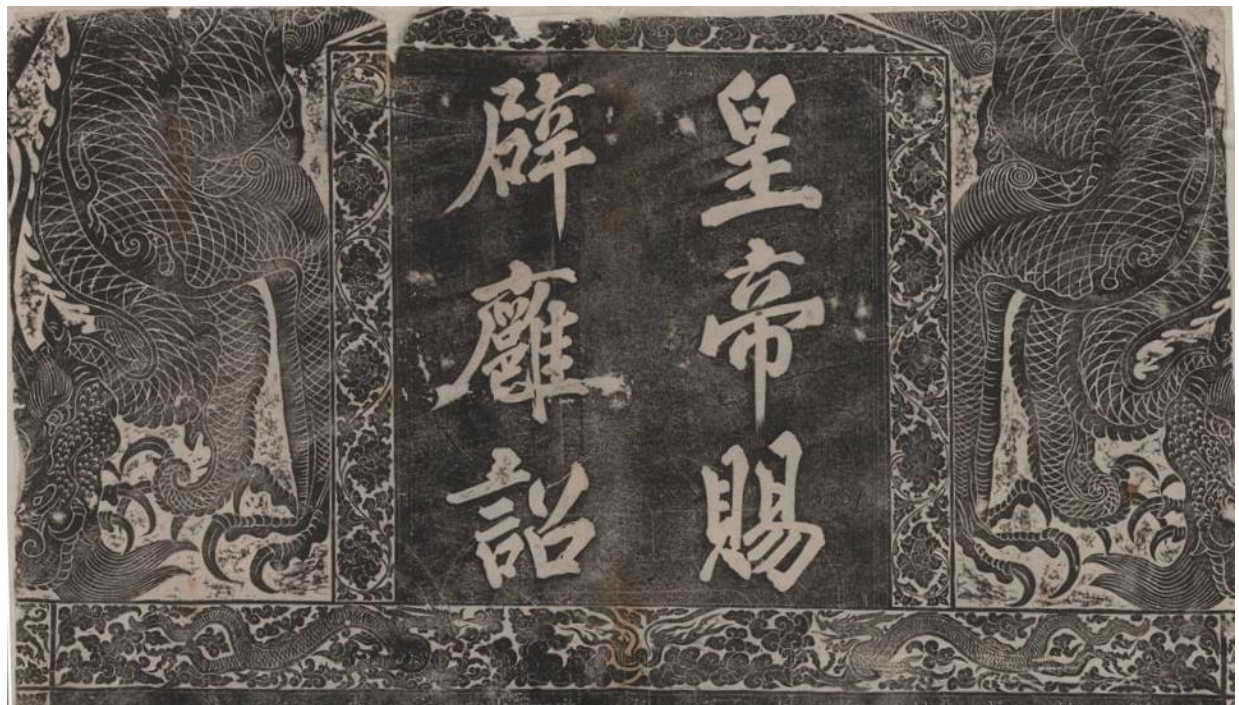 皇帝賜
辟廱詔